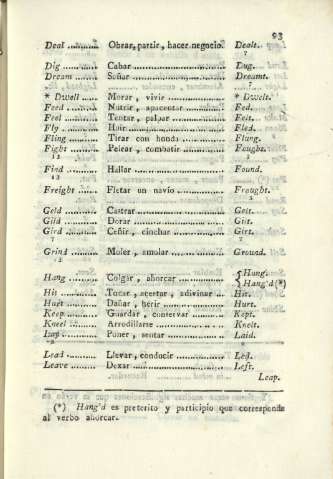 93
Deal ........... Obrar, partir, hacer negocio. Dealt.
7
Dig ............ Cabar ........................ Dug.
Dream .......... Soñar ........................ Dreamt.
7
* Dwell ........ Morar, vivir ................. * Dwelt.
Feed ........... Nutrir, apacentar ............ Fed.
Feel ........... Tentar, palpar ............... Felt.
Fly ............ Huir ......................... Fled.
Fling .......... Tirar con honda .............. Flung.
Fight .......... Pelear, combatir ............. Fought.
12
Find ........... Hallar ....................... Found.
12
Freight ........ Fletar un navio .............. Fraught.
3
Geld ........... Castrar ...................... Gelt.
Gild ........... Dorar ........................ Gilt.
Gird ........... Ceñir, cinchar ............... Girt.
7 7
Grind .......... Moler, amolar ................ Ground.
Hang ........... Colgar, ahorcar .............. { Hung.
Hang'd (*)
Hit ............ Tocar, acertar, adivinar ... Hit.
Hurt ........... Dañar, herir ................. Hurt.
Keep ........... Guardar, conservar ........... Kept.
Kneel .......... Arrodillarse ................. Knelt.
Poner, sentar ................ Laid.
Lead ........... Llevar, conducir ............. Led.
Leave .......... Dexar ........................ Left.
Leap.
(*) Hang'd es preterito y participio que corresponde
al verbo ahorcar.